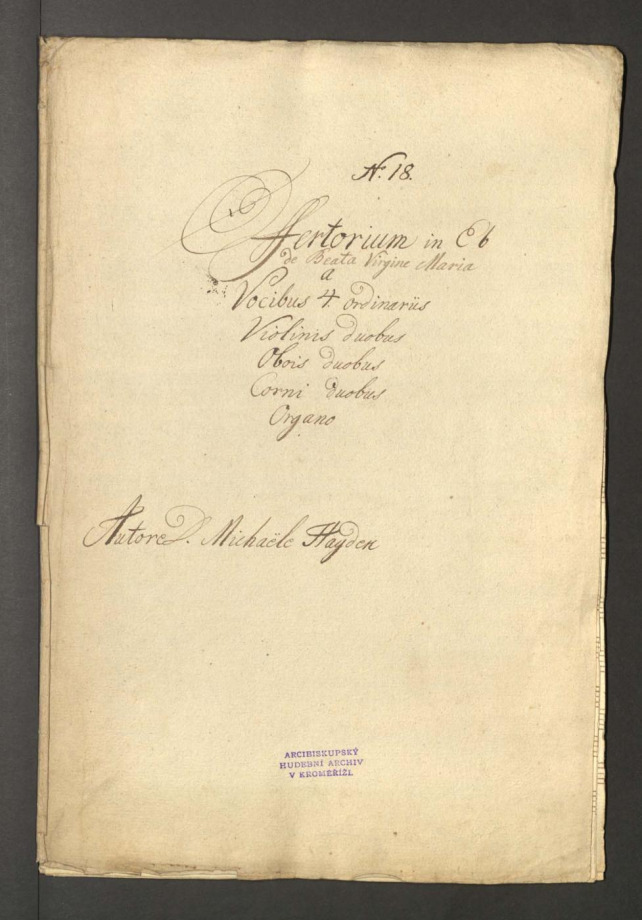 N: 18.
Offertorium in Eb
de Beata Virgine Maria
a
Vocibus 4. ordinariis
Violinis duobus
Obois duobus
Corni duobus
Organo
Autore D. Michaële Hayden
ARCIBISKUPSKÝ
HUDEBNÍ ARCHIV
V KROMĚŘÍŽI.